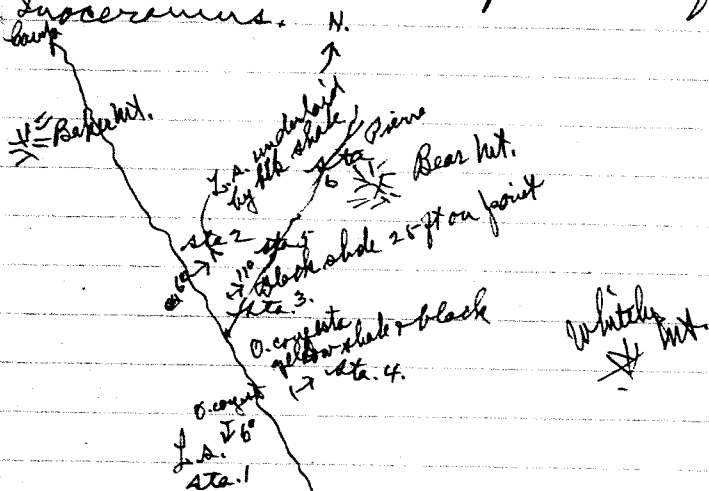 Inoceramus.
N.
Camp
Baker Mt.
L.s. underlaid
by blk shale
Pierre
sta
6
Bear Mt.
sta 2
sta 5
6°
11°
Black shale 25 ft on point
sta. 3.
O. congesta
yellow shale & black
sta. 4.
Whitely Mt.
O. congest
6°
L.s.
sta. 1